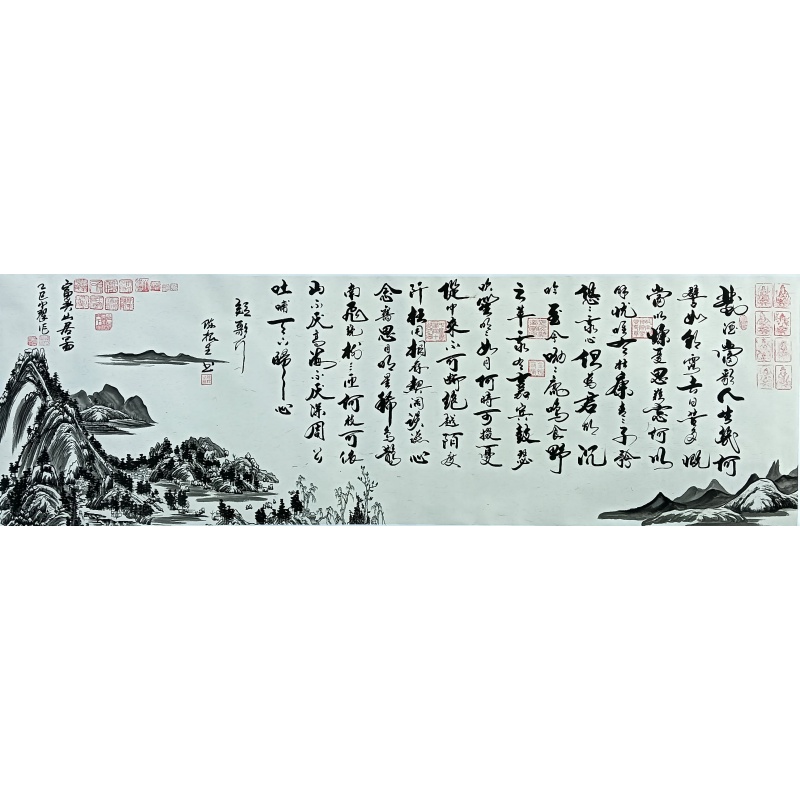 對酒當歌人生幾何
譬如朝露去日苦多慨
當以慷憂思難忘何以
解忧唯有杜康青々子衿
悠々我心但為君故沉
吟至今呦々鹿鳴食野
之苹我有嘉宾鼓瑟
吹笙明々如月何時可掇憂
從中来不可斷絕越陌度
阡枉用相存契闊談讌心
念舊恩月明星稀烏鵲
南飛绕樹三匝何枝可依
山不厌高海不厌深周公
吐哺天下歸心
短歌行
陈根生书
富春山居图
乙巳